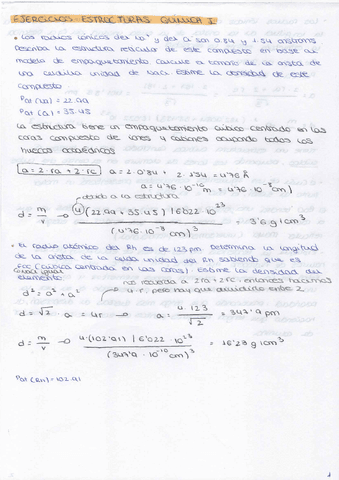 EJERCICIOS ESTRUCTURAS QUIMICA I
• Los radios iónicos del Na⁺ y del Cl son 0.84 y 1.54 angstroms
Describa la estructura reticular de este compuesto en base al
modelo de empaquetamiento calcule el tamaño de la arista de
la celdilla unidad de basa estime la densidad de este
compuesto
Pat (Na) = 22.99
Pat (Cl) = 35.45
La estructura tiene un empaquetamiento cubico centrado en las
caras compuesto de iones y cationes ocupando todos los
huecos octaédricos
a = 2·ra + 2·rc a = 2·0'84 + 2·1'54 = 4'76 Å
a = 4'76·10⁻¹⁰ m = 4'76·10⁻⁸ cm
debido a la estructura
d = m/v → 4(22.99 + 35.45) / 6'022·10²³ / (4'76·10⁻⁸ cm)³ = 3'6 g/cm³
• El radio atómico del Rh es de 123 pm determina la longitud
de la arista de la celda unidad del Rh sabiendo que es
FCC (cúbica centrada en las caras). Estime la densidad del
elemento
no recuerda a 2ra + 2rc, entonces hacemos
d² = a² + a²
4·r, pero hay que dividirlo entre √2
d = √2·a = 4r a = 4·123 / √2 = 347'9 pm
d = m/v → 4·(102'91) / 6'022·10²³ / (347'9·10⁻¹⁰ cm)³ = 16'23 g/cm³
Pat (Rh) = 102.91
1